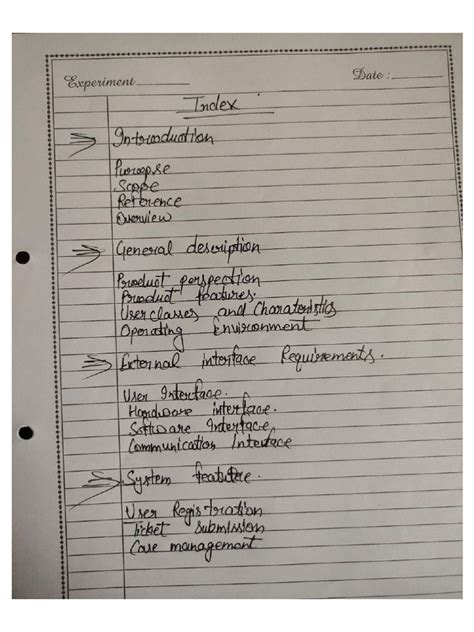 Experiment
Date :
Index
Introduction
Puroopse
Scope
Reference
Overview
General description
Product perspection
Product features.
User classes and Charateristics
Operating Environment
External interface Requirements.
User Interface.
Hardware interface.
Software Interface,
Communication Interface
System feature.
User Registration
Ticket submission
Case management